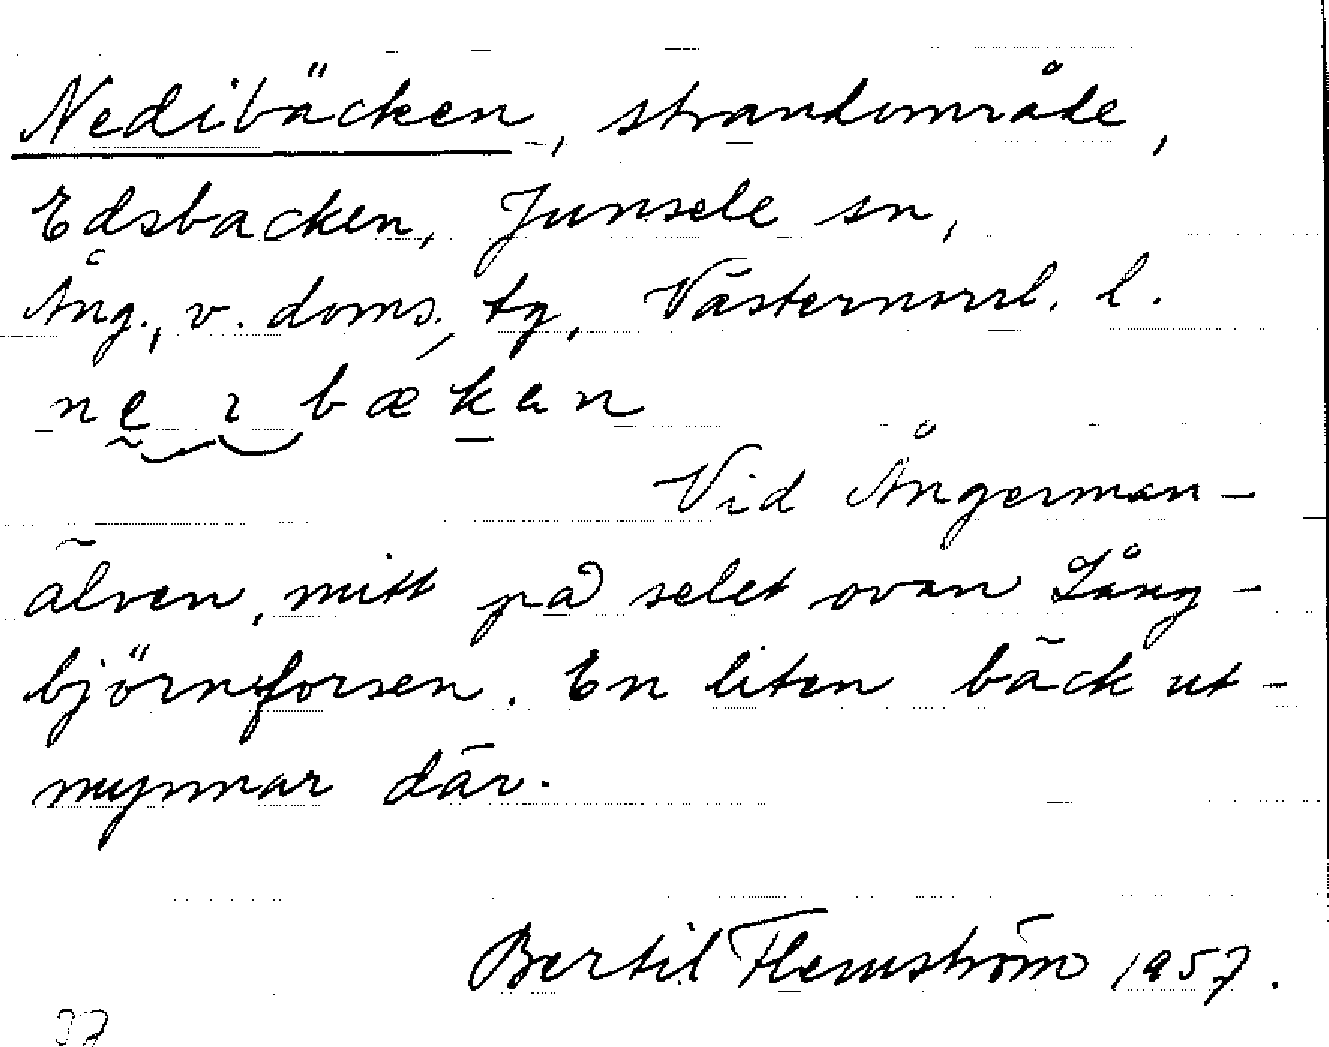 Nedibäcken, strandområde,
Edsbacken, Junsele sn,
Ång., v. doms. tg, Västernorrl. l.
ne ı bækan
Vid Ångerman-
älven, mitt på selet ovan Lång-
björnforsen. En liten bäck ut-
mynnar där.
Bertil Flemström 1957.